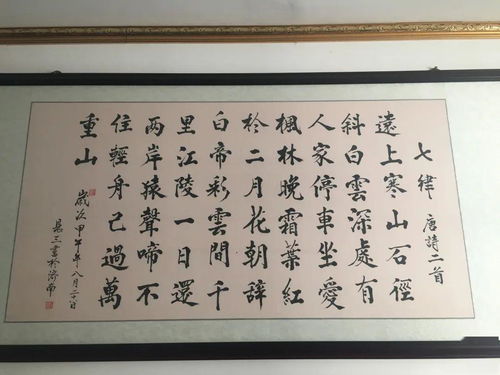 七律 唐詩二首
遠上寒山石徑
斜白雲深處有
人家停車坐愛
楓林晚霜葉紅
於二月花朝辭
白帝彩雲間千
里江陵一日還
兩岸猿聲啼不
住輕身已過萬
重山
歲次甲午年八月二十日
三書於济南